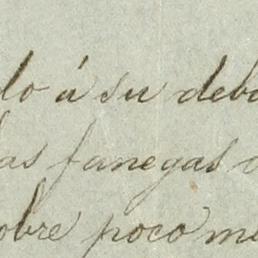 do á su deb
las fanegas
sobre poco m